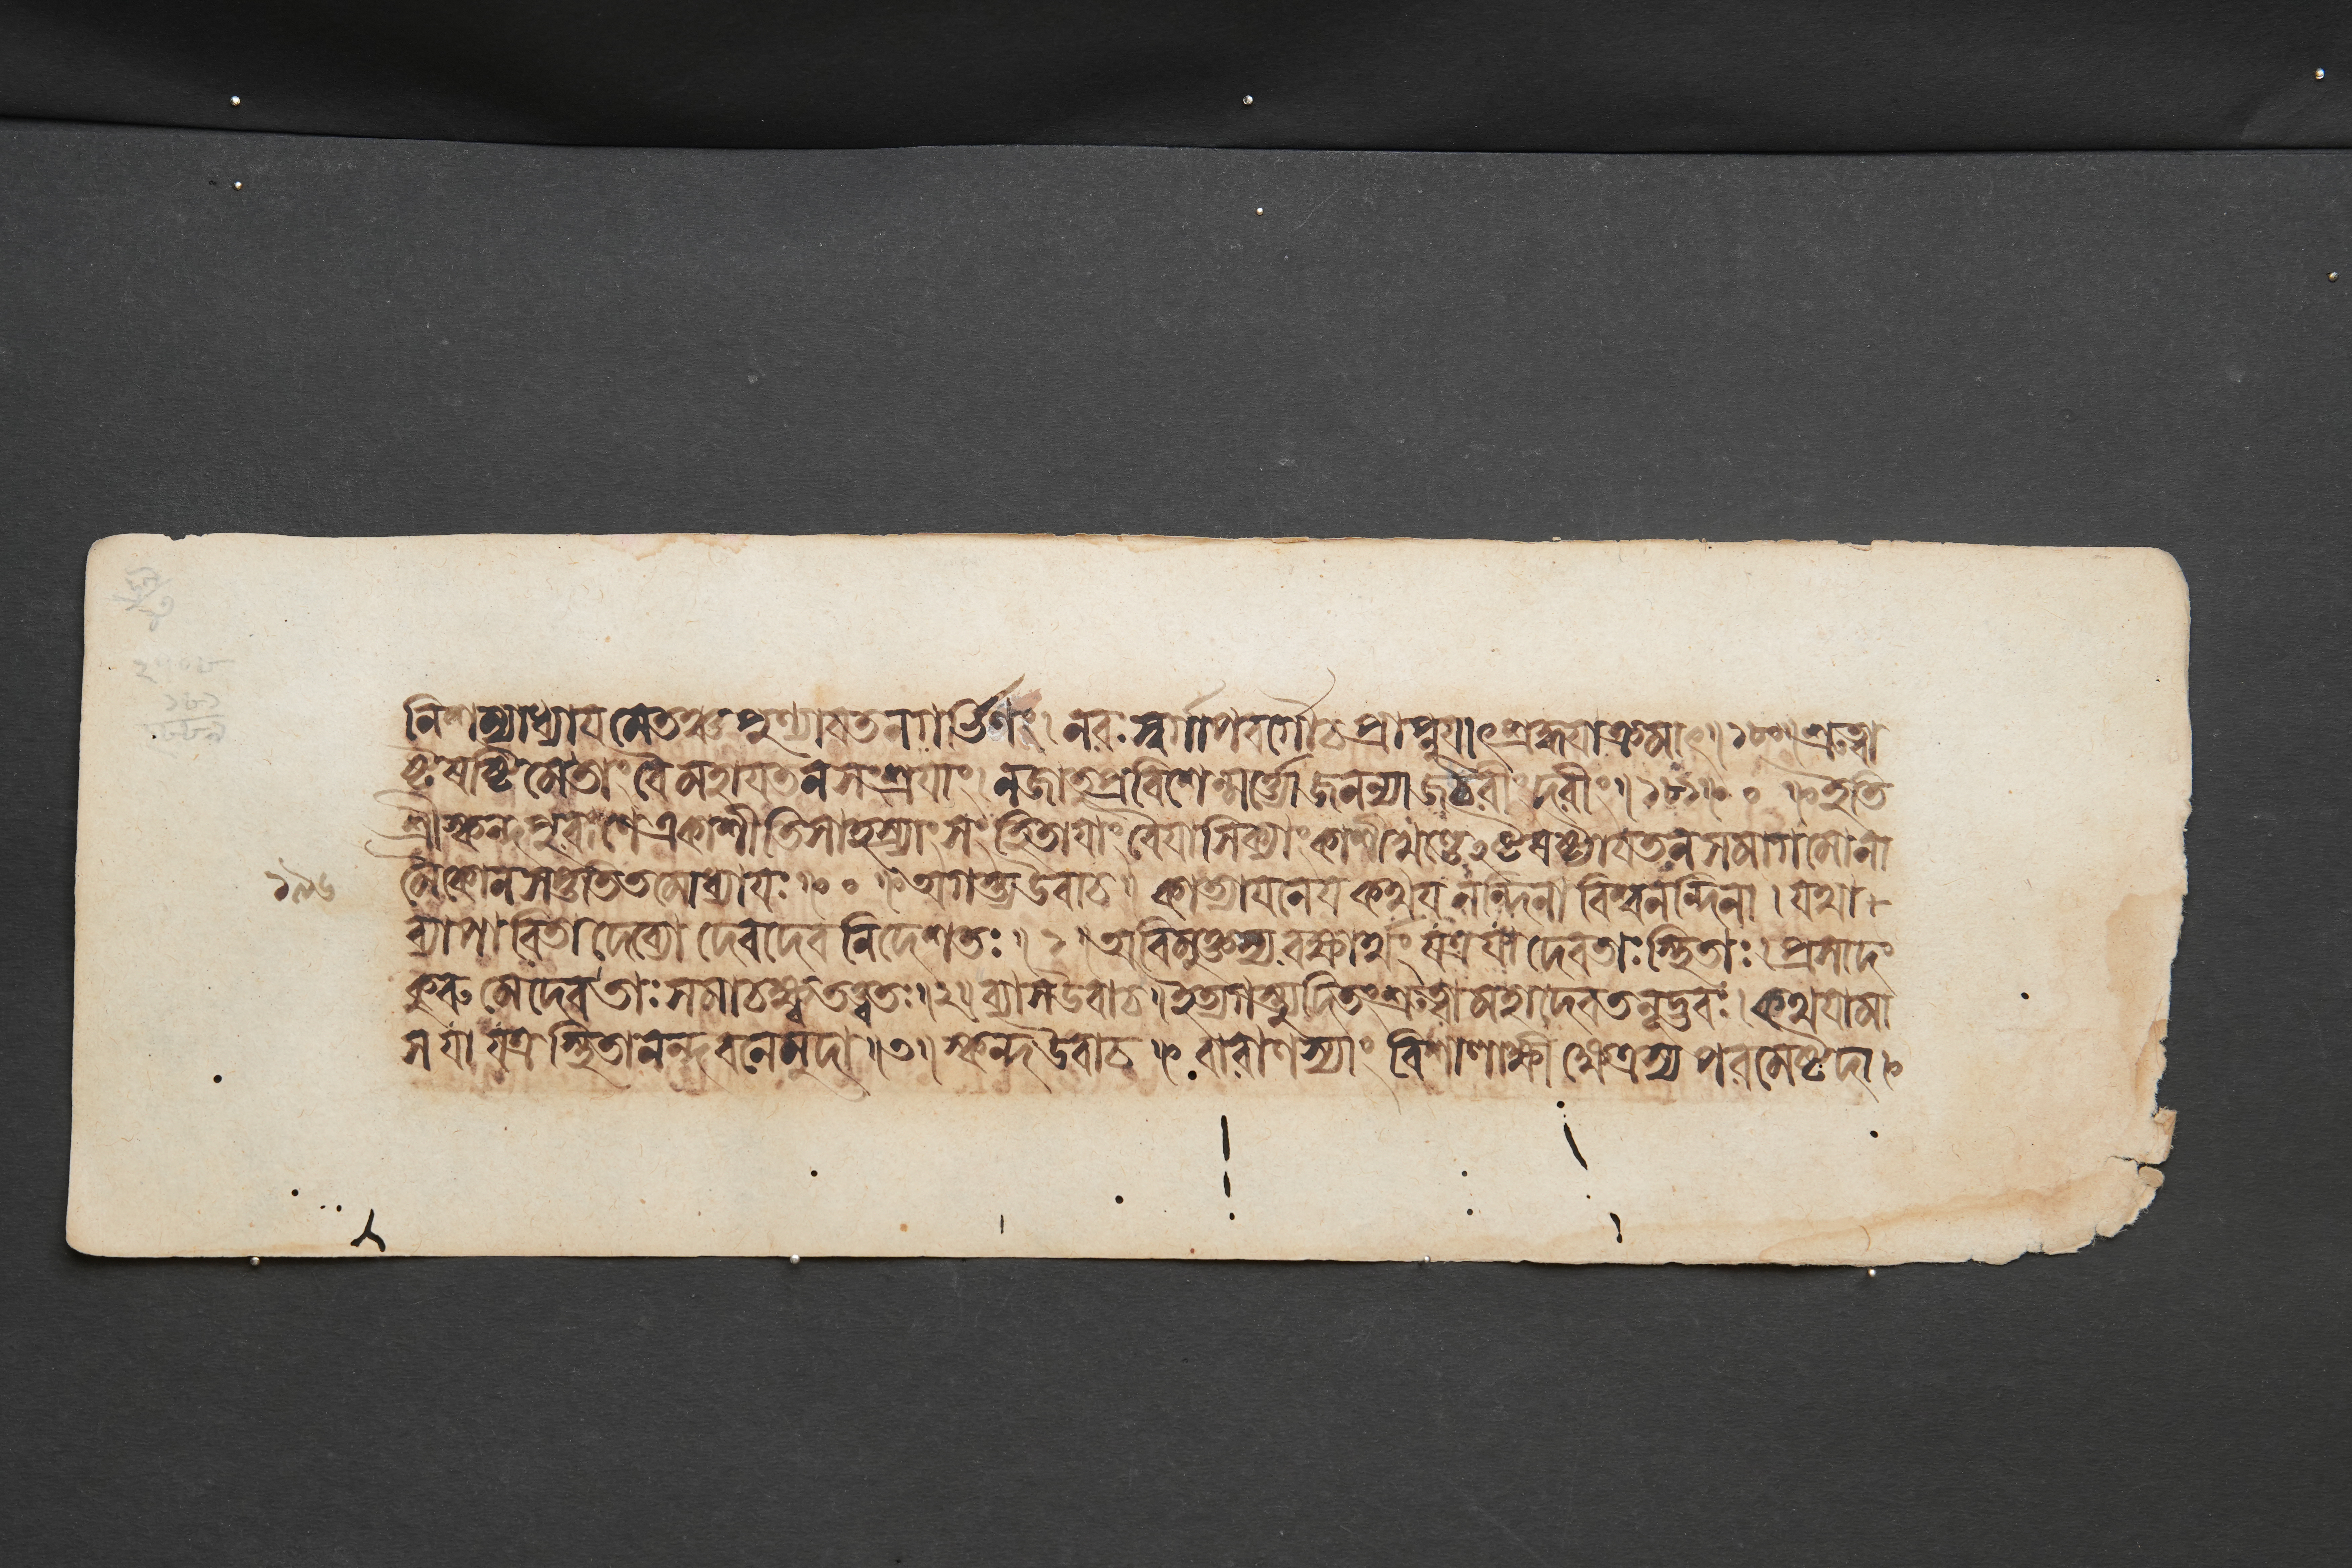 নিশম্যাধ্যায়মেতঞ্চ পুণ্যায়তনগর্ভিণং। নরঃ স্বর্গাপবর্গৌ চ প্রাপ্নুয়াৎ শ্রদ্ধয়া ক্রমাৎ॥ ১৮০॥ শ্রুত্বা
ষ্টষষ্টিমেতাং বৈ মহায়তনসংশ্রয়াং। ন জাতু প্রবিশেন্মর্ত্ত্যো জনন্যা জঠরীং দরীং॥ ১৮১॥ ০ ॥ ইতি
শ্রীস্কন্দপুরাণে একাশীতিসাহস্র্যাং সংহিতায়াং বৈয়াসিক্যাং কাশীখণ্ডেঽষ্টষষ্ট্যায়তনসমাগমোনা
মৈকোনসপ্ততিতমোধ্যায়ঃ॥ ০ ॥ অগস্ত্য উবাচ॥ কাত্যায়নেয় কথয় নন্দিনা বিশ্বনন্দিনা। যথা
ব্যাপারিতা দেব্যো দেবদেবনিদেশতঃ॥ ১॥ অবিমুক্তস্য রক্ষার্থং যত্র যা দেবতাঃ স্থিতাঃ। প্রসাদং
কুরু মে দেবতাঃ সমাচক্ষ্ব তত্ত্বতঃ॥২॥ ব্যাস উবাচ॥ ইত্যগস্ত্যুদিতং শ্রুত্বা মহাদেবতনূদ্ভবঃ। কথয়ামা
স যা যত্র স্থিতানন্দবনে মুদা॥৩॥ স্কন্দ উবাচ॥ বারাণস্যাং বিশালাক্ষী ক্ষেত্রস্য পরমেষ্টদা॥
১৯৬